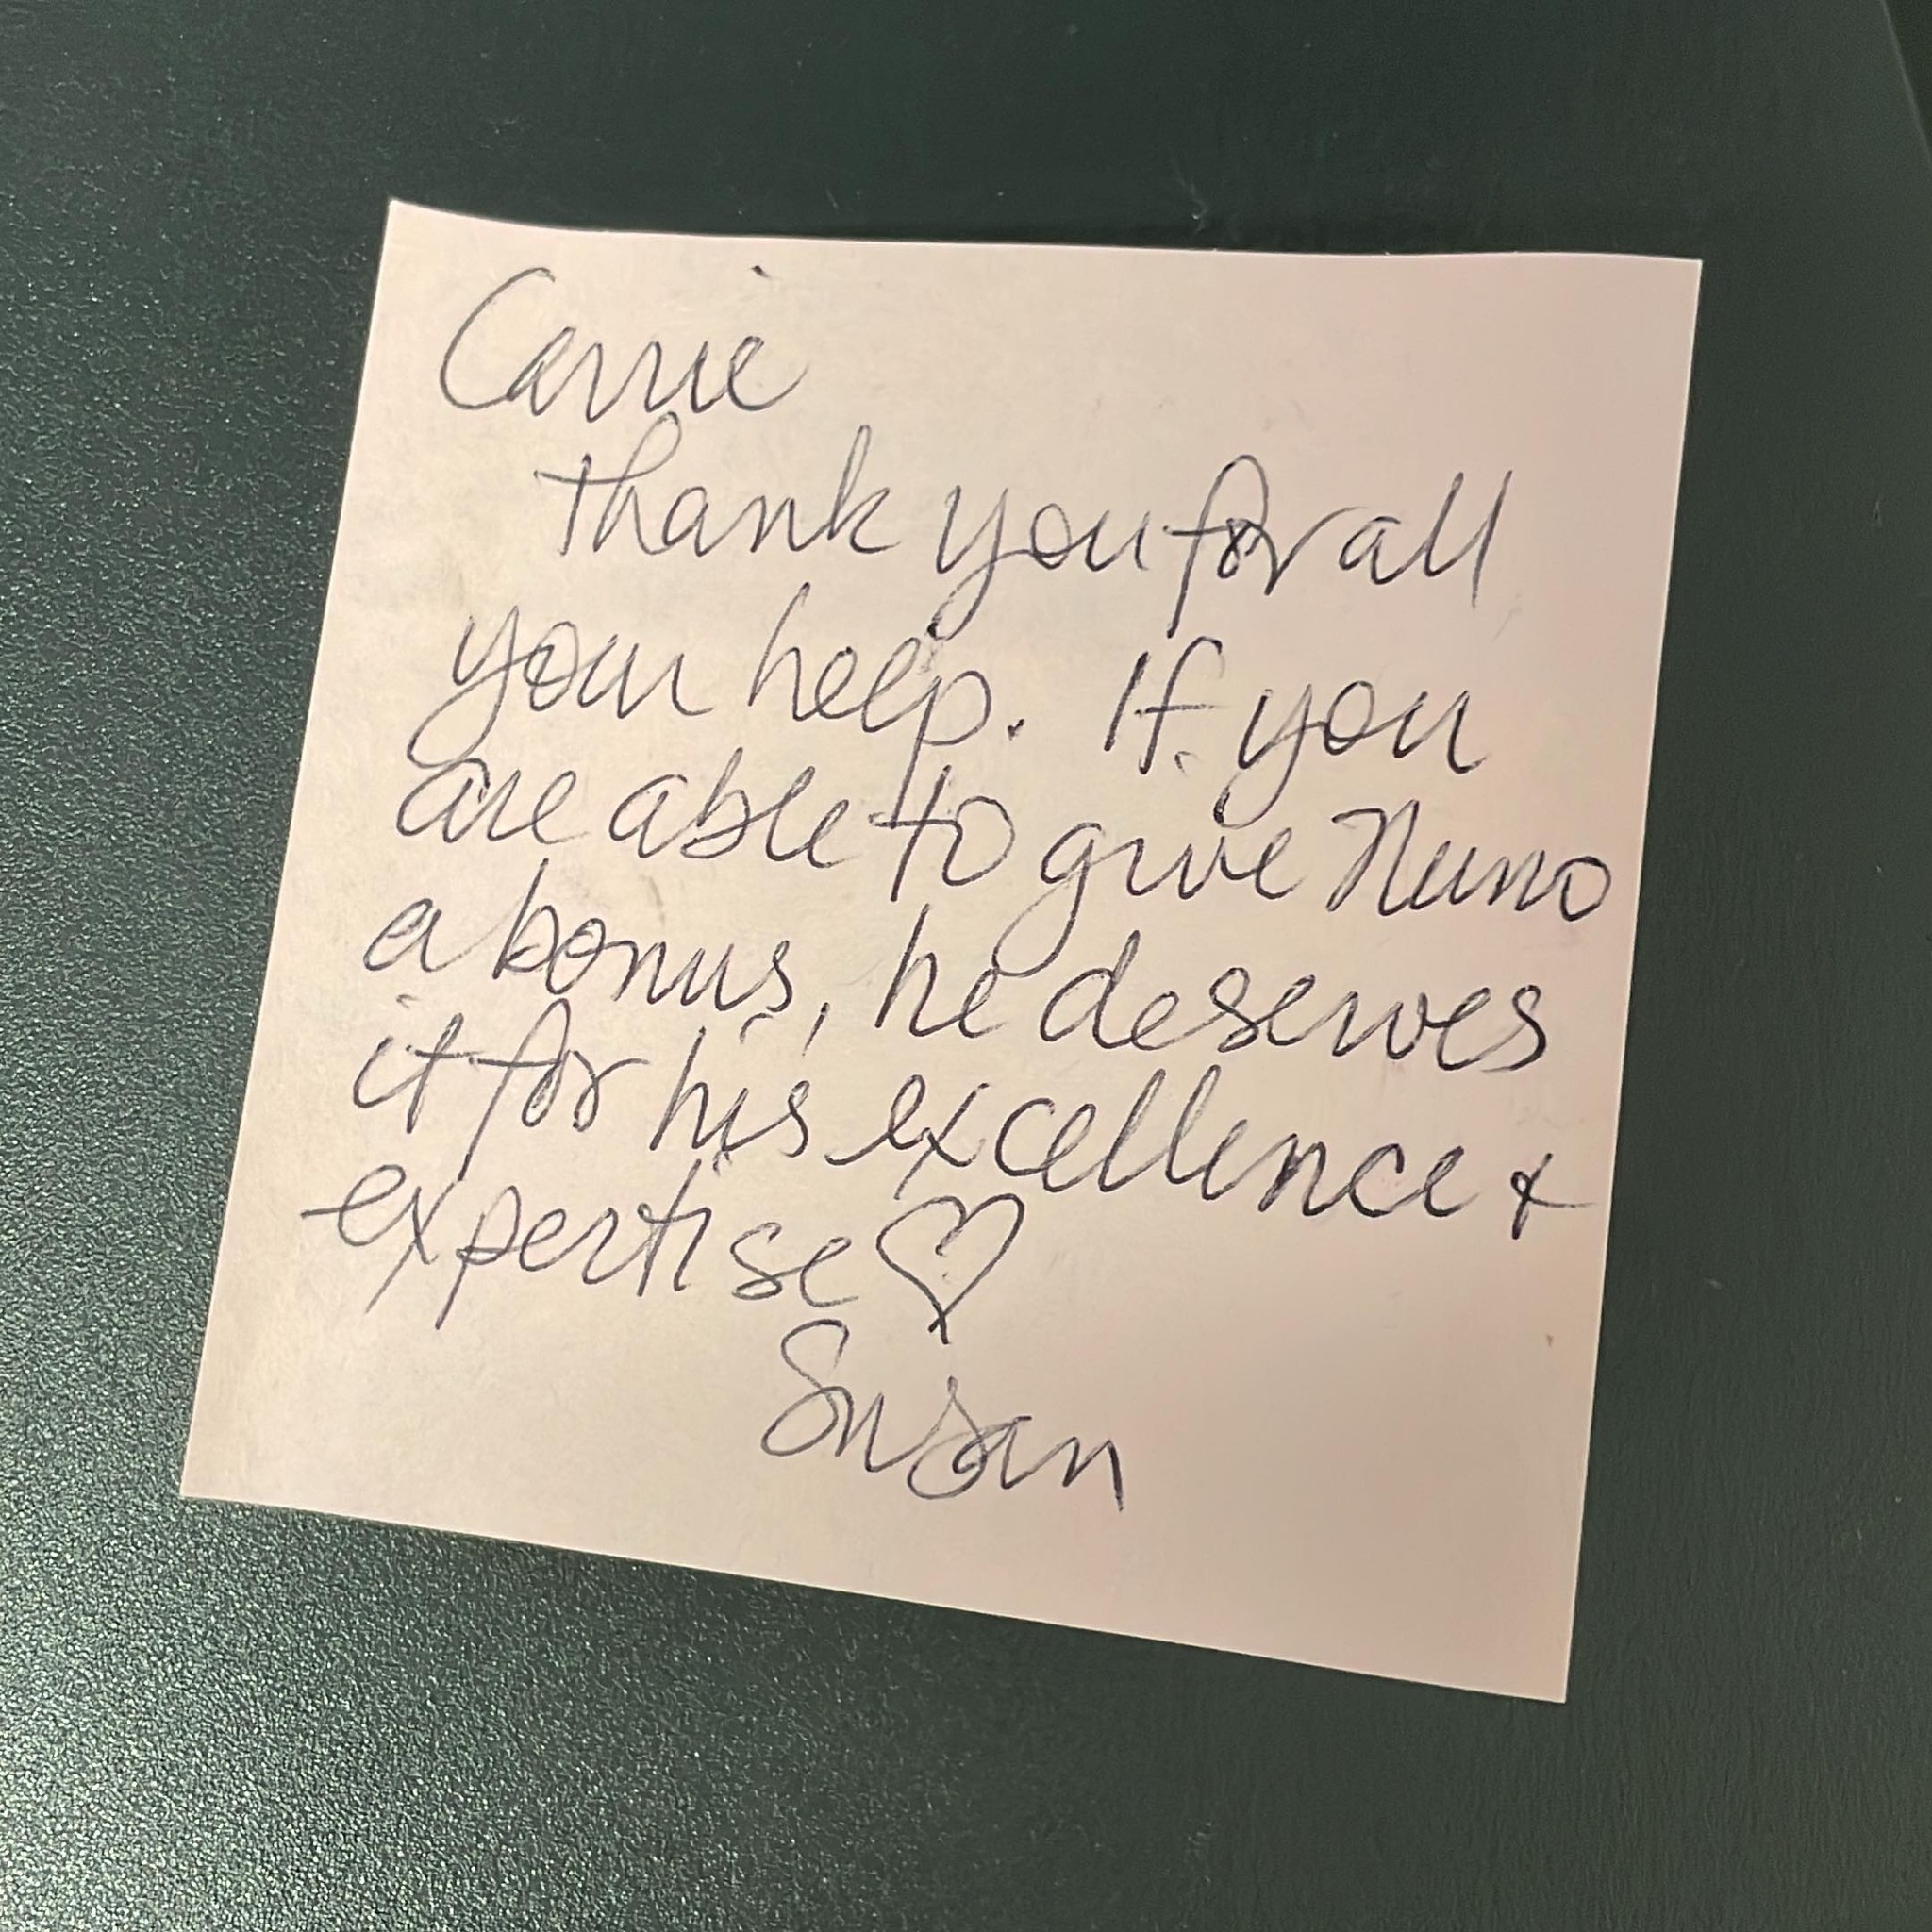 Carrie
thank you for all
your help. If you
are able to give Nuno
a bonus, he deserves
it for his excellence +
expertise ♡
Susan